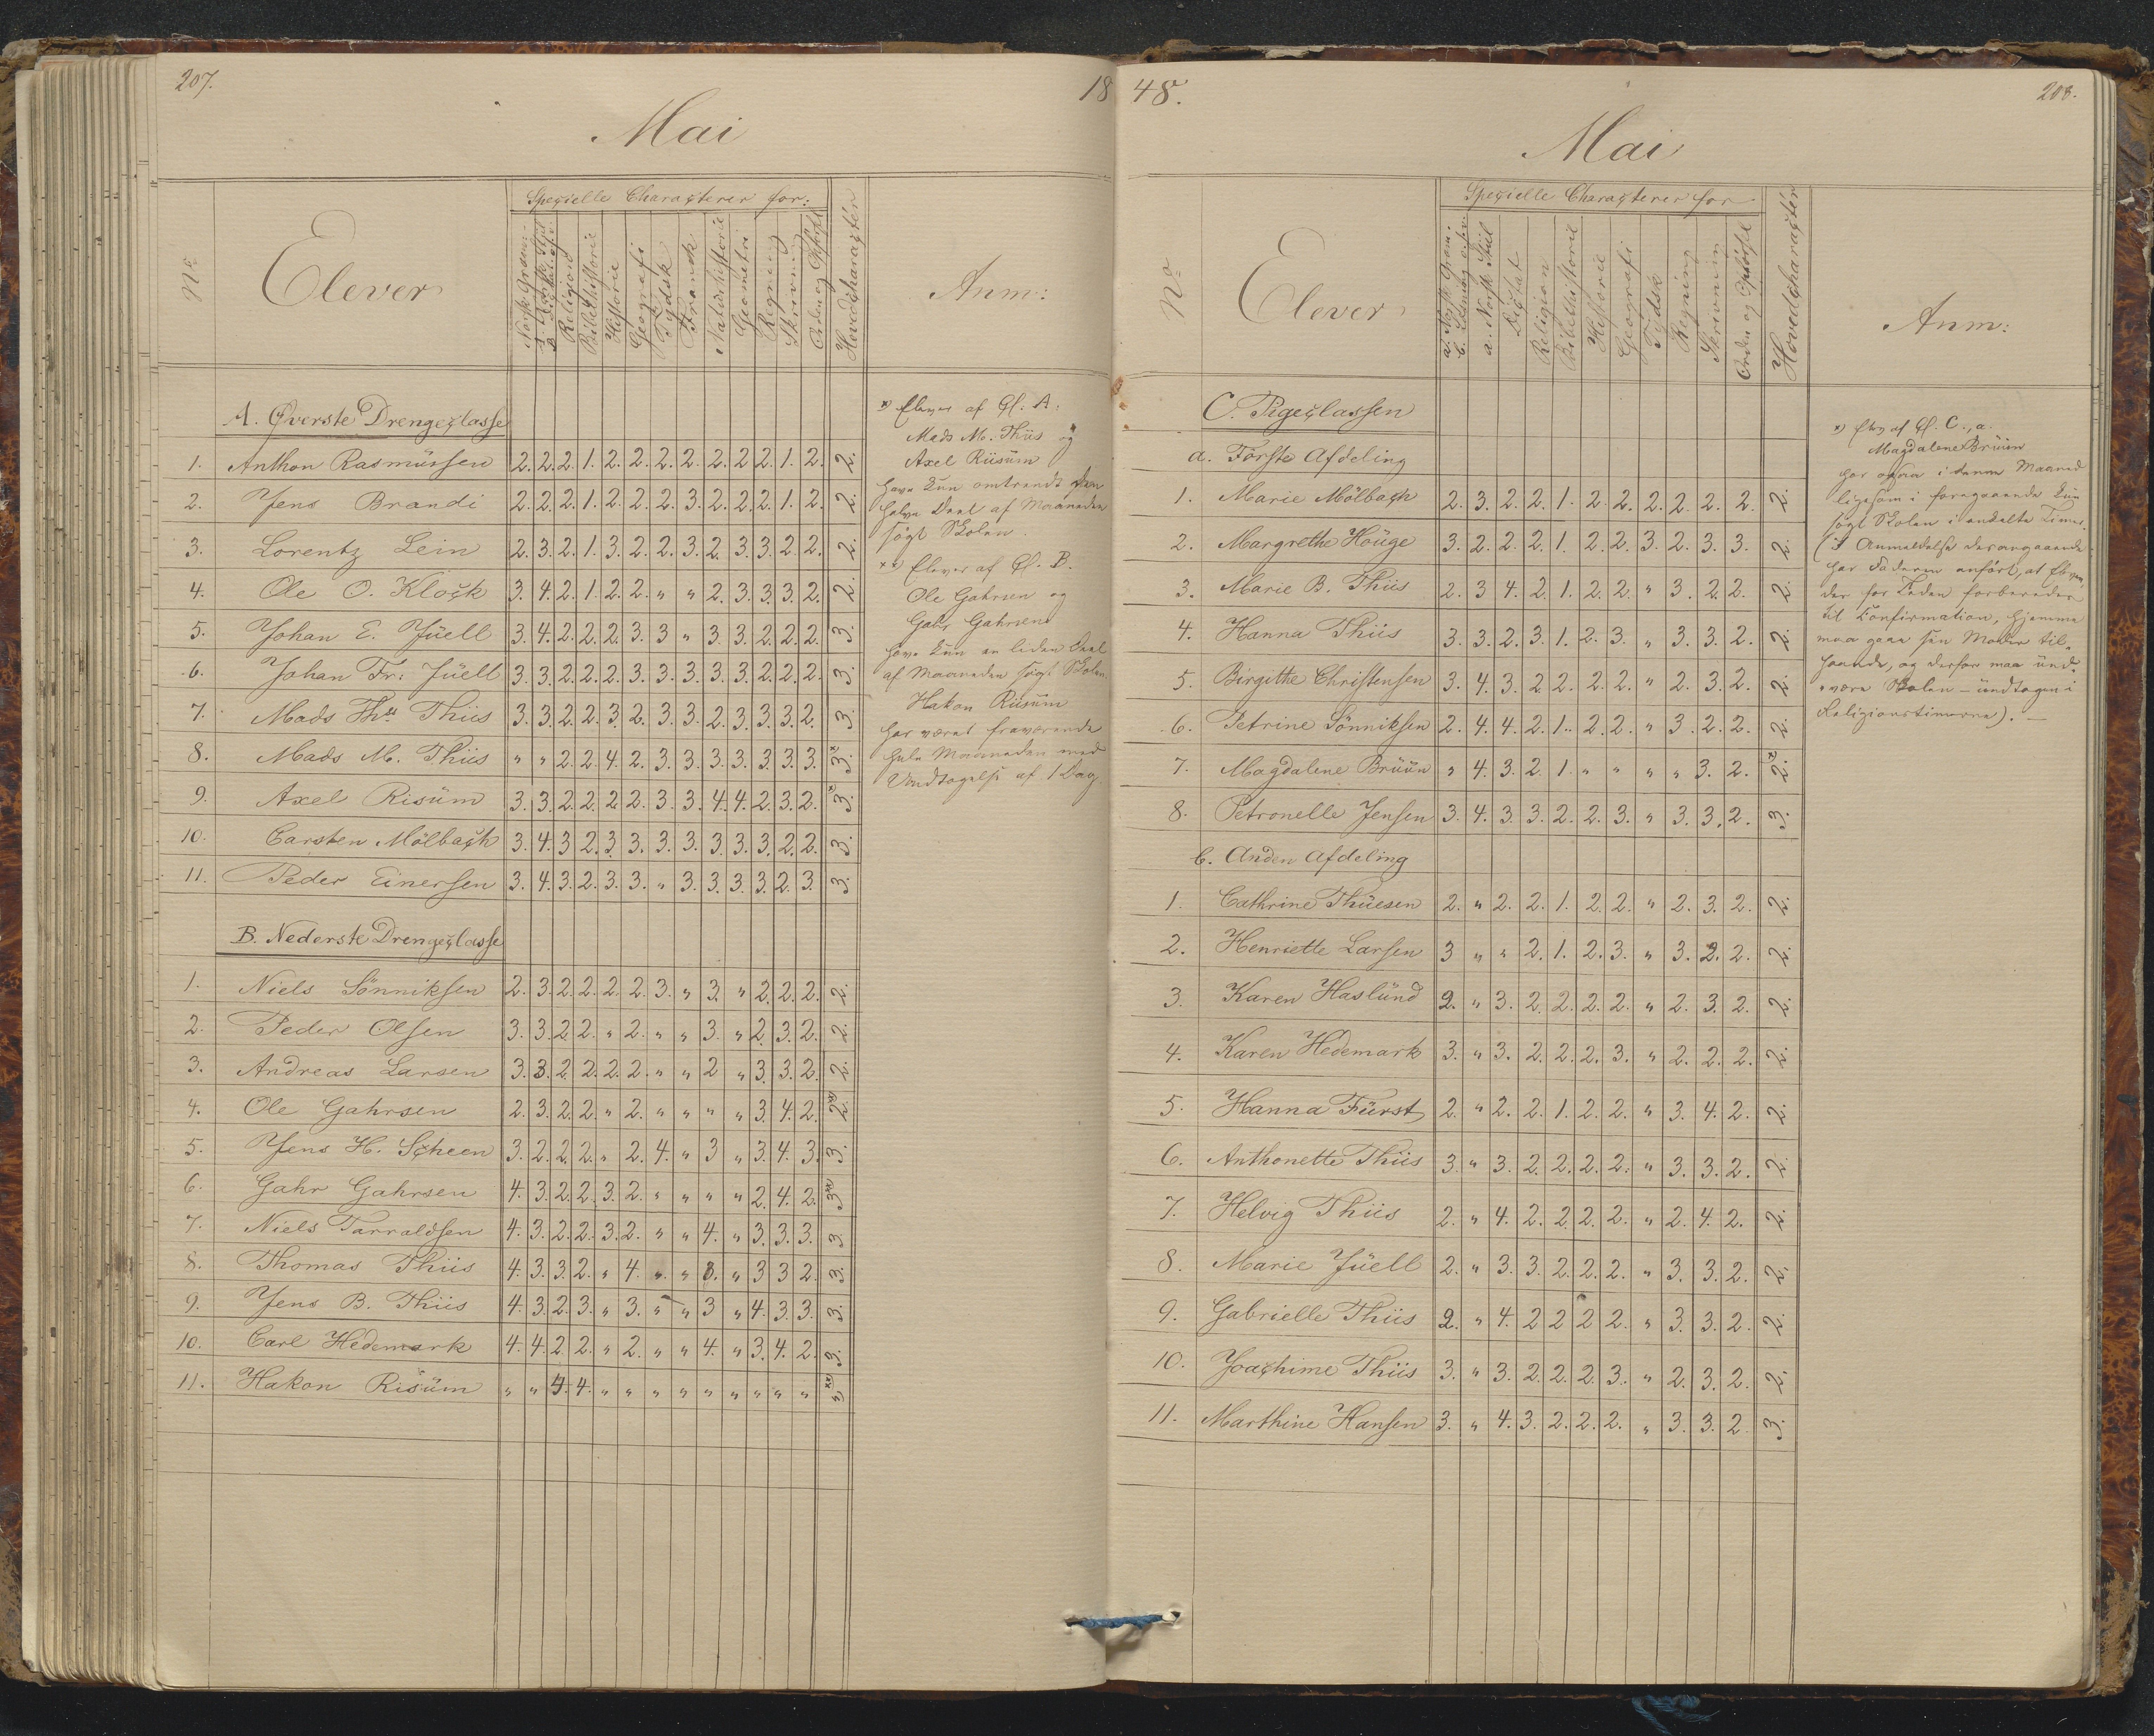 207.
18
Mai
Specielle Characterer for:
No
Elever
Religion
Bibelhistorie
Historie
Geografi
Tydsk
Fransk
Naturhistorie
Geometri
Regning
Skrivning
Orden og Opførsel
Hovedcharacter
Anm:
A. Øverste Drengeclasse
1. Anthon Rasmüssen 2. 2. 2. 1. 2. 2. 2. 2. 2. 2 2. 1. 2. 2.
2. Jens Brandi 2. 2. 2. 1. 2. 2. 2. 3. 2. 2. 2. 1. 2. 2.
3. Lorentz Lein 2. 3. 2. 1. 3. 2. 2. 3. 2. 3. 3. 2. 2. 2.
4. Ole O. Klock 3. 4. 2. 1. 2. 2. " " 2. 3. 3. 3. 2. 2.
5. Johan E. Jüell 3. 4. 2. 2. 2. 3. 3 " 3. 3. 2. 2. 2. 3.
6. Johan Fr: Jüell 3. 3. 2. 2. 2. 3. 3. 3. 3. 3. 2. 2. 2. 3.
7. Mads Ths Thiis 3. 3. 2. 2. 3. 2. 3. 3. 2. 3. 3. 3. 2. 3.
8. Mads M. Thiis " " 2. 2. 4. 2. 3. 3. 3. 3. 3. 3. 3. 3.*
9. Axel Risüm 3. 3. 2. 2. 2. 2. 3. 3. 4. 4. 2. 3. 2. 3.*
10. Carsten Mölbach 3. 4. 3 2. 3. 3. 3. 3. 3. 3. 3. 2. 2. 3.
11. Peder Einersen 3. 4. 3. 2. 3. 3. " 3. 3. 3. 3. 2. 3. 3.
B. Nederste Drengeclasse
1. Niels Sönniksen 2. 3. 2. 2. 2. 2. 3. " 3. " 2. 2. 2. 2.
2. Peder Olsen 3. 3. 2. 2. " 2. " " 3. " 2. 3. 2. 2.
3. Andreas Larsen 3. 3. 2. 2. 2. 2. " " 2 " 3. 3. 2. 2.
4. Ole Gahrsen 2. 3. 2. 2. " 2. " " " " 3. 4. 2. 2.**
5. Jens H. Scheen 3. 2. 2. 2. " 2. 4. " 3 " 3. 4. 3. 3.
6. Gahr Gahrsen 4. 3. 2. 2. 3. 2. " " " " 2. 4. 2. 3.**
7. Niels Tarraldsen 4. 3. 2. 2. 3. 2. " " 4. " 3. 3. 3. 3.
8. Thomas Thiis 4. 3. 3. 2. " 4. " " 3. " 3 3 2. 3.
9. Jens B. Thiis 4. 3. 2. 3. " 3. " " 3 " 4. 3. 3. 3.
10. Carl Hedemark 4. 4. 2. 2. " 2. " " 4. " 3. 4. 2. 3.
11. Hakon Risüm " " 4. 4. " " " " " " " " " "**
*) Elever af Cl. A:
Mads M. Thiis og
Axel Riisüm
have kun omtrendt den
halve Deel af Maaneden
søgt Skolen.
**) Elever af Cl. B.
Ole Gahrsen og
Gahr Gahrsen
have kun en liden Deel
af Maaneden søgt Skolen.
Hakon Riisüm
har været fraværende
hele Maaneden med
Undtagelse af 1 Dag.
48.
208.
Mai
Specielle Characterer for
No
Elever
a. Norsk Stiil
Dictat
Religion
Bibelhistorie
Historie
Geografi
Tydsk
Regning
Skrivning
Orden og Opførsel
Hovedcharacter
Anm:
C. Pigeclassen
a. Förste Afdeling
1. Marie Mölbach 2. 3. 2. 2. 1. 2. 2. 2. 2. 2. 2. 2.
2. Margrethe Houge 3. 2. 2. 2. 1. 2. 2. 3. 2. 3. 3. 2.
3. Marie B. Thiis 2. 3 4. 2. 1. 2. 2. " 3. 2. 2. 2.
4. Hanna Thiis 3. 3. 2. 3. 1. 2. 3. " 3. 3. 2. 2.
5. Birgithe Christensen 3. 4. 3. 2 2. 2. 2. " 2. 3. 2. 2.
6. Petrine Sönniksen 2. 4. 4. 2. 1. 2. 2. " 3. 2. 2. 2.
7. Magdalene Brüün " 4. 3. 2. 1. " " " " 3. 2. 2.*
8. Petronelle Jensen 3. 4. 3. 3. 2. 2. 3. " 3. 3. 2. 3.
b. Anden Afdeling
1. Cathrine Thüesen 2. " 2. 2. 1. 2. 2. " 2. 3. 2. 2.
2. Henriette Larsen 3 " " 2. 1. 2. 3. " 3. 2. 2. 2.
3. Karen Haslünd 2. " 3. 2. 2. 2. 2. " 2. 3. 2. 2.
4. Karen Hedemark 3. " 3. 2. 2. 2. 3. " 2. 2. 2. 2.
5. Hanna Fürst 2. " 2. 2. 1. 2. 2. " 3. 4. 2. 2.
6. Anthonette Thiis 3. " 3. 2. 2. 2. 2. " 3. 3. 2. 2.
7. Helvig Thiis 2. " 4. 2. 2. 2. 2. " 2. 4. 2. 2.
8. Marie Jüell 2. " 3. 3. 2. 2. 2. " 3. 3. 2. 2.
9. Gabrielle Thiis 2. " 4. 2 2 2 2. " 3. 3. 2. 2.
10. Joachime Thiis 3. " 3. 2. 2. 2. 3. " 2. 3. 2. 2.
11. Marthine Hansen 3. " 4. 3. 2. 2. 2. " 3. 3. 2. 3.
*) Elev af Cl. C., a.
Magdalene Brüün
har ogsaa i denne Maaned
ligesom i foregaaende kun
søgt Skolen i enkelte Timer.
(I Anmeldelse derangaaende
har Faderen anført, at Eleven,
der for Tiden forbereder
til Confirmation, hjemme
maa gaae sin Moder til-
haande, og derfor maa und-
være Skolen – undtagen i
Religionstimerne). –